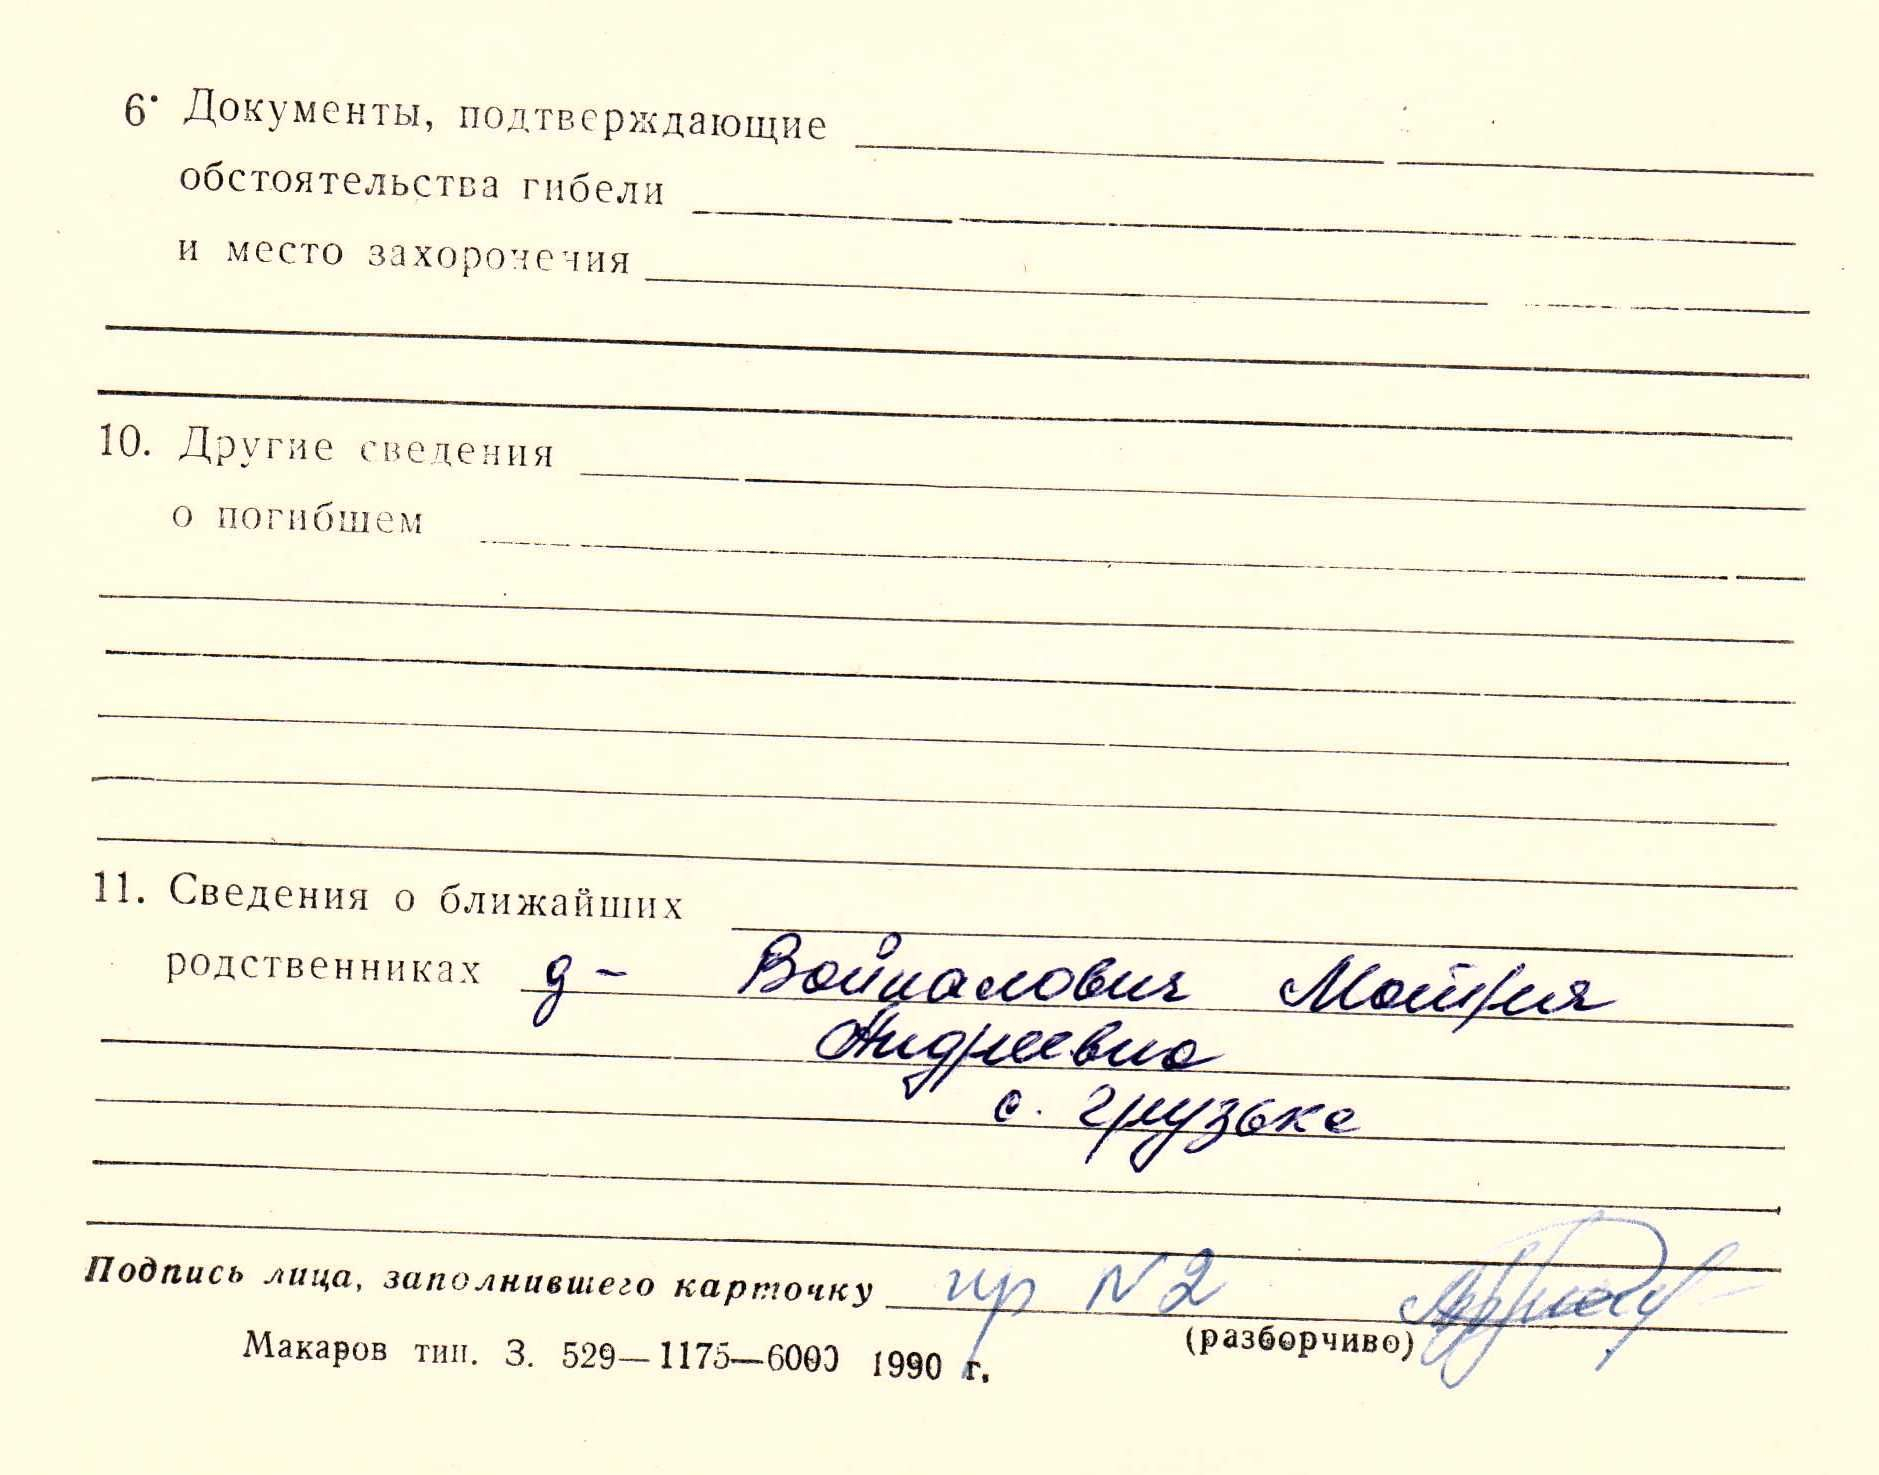 6. Документы, подтверждающие
обстоятельства гибели
и место захоронения
10. Другие сведения
о погибшем
11. Сведения о ближайших
родственниках д - Войналович Мотрия
Андреевна
с. Грузьке
Подпись лица, заполнившего карточку пр N 2
(разборчиво)
Макаров тип. З. 529—1175—6000 1990 г.